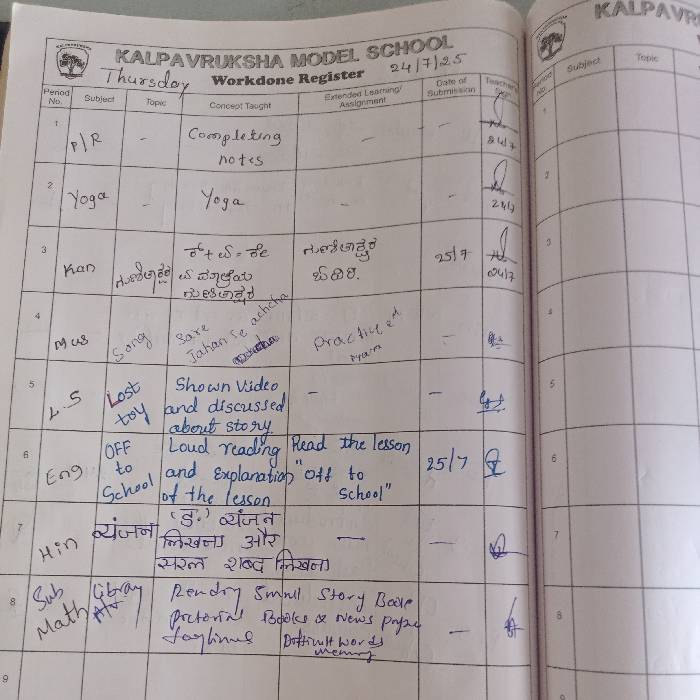 KALPAVRUKSHA MODEL SCHOOL
Thursday Workdone Register 24/7/25
Period No. Subject Topic Concept Taught Extended Learning/ Assignment Date of Submission Teacher's Sign
1 P/R - Completing - -
notes 24/7
2 Yoga - Yoga - - 24/7
3 Kan ಗುಣಿತಾಕ್ಷರ ಕ್ + ಎ = ಕೆ ಗುಣಿತಾಕ್ಷರ 25/7
ಗುಣಿತಾಕ್ಷರ ಬರೆ. 24/7
4 Mus Song Sare
Jahan Se achcha Practiced -
5 L.S Lost Shown Video - -
toy and discussed
about story
6 Eng OFF Loud reading Read the lesson 25/7
to and Explanation "Off to
School of the lesson School"
7 Hin व्यंजन (ङ.) व्यंजन - -
लिखना और
सरल शब्द लिखना
8 Sub Small Story
Math Books & News -
Difficult words
9
KALPAVR
Period No. Subject Topic
1
2
3
4
5
6
8